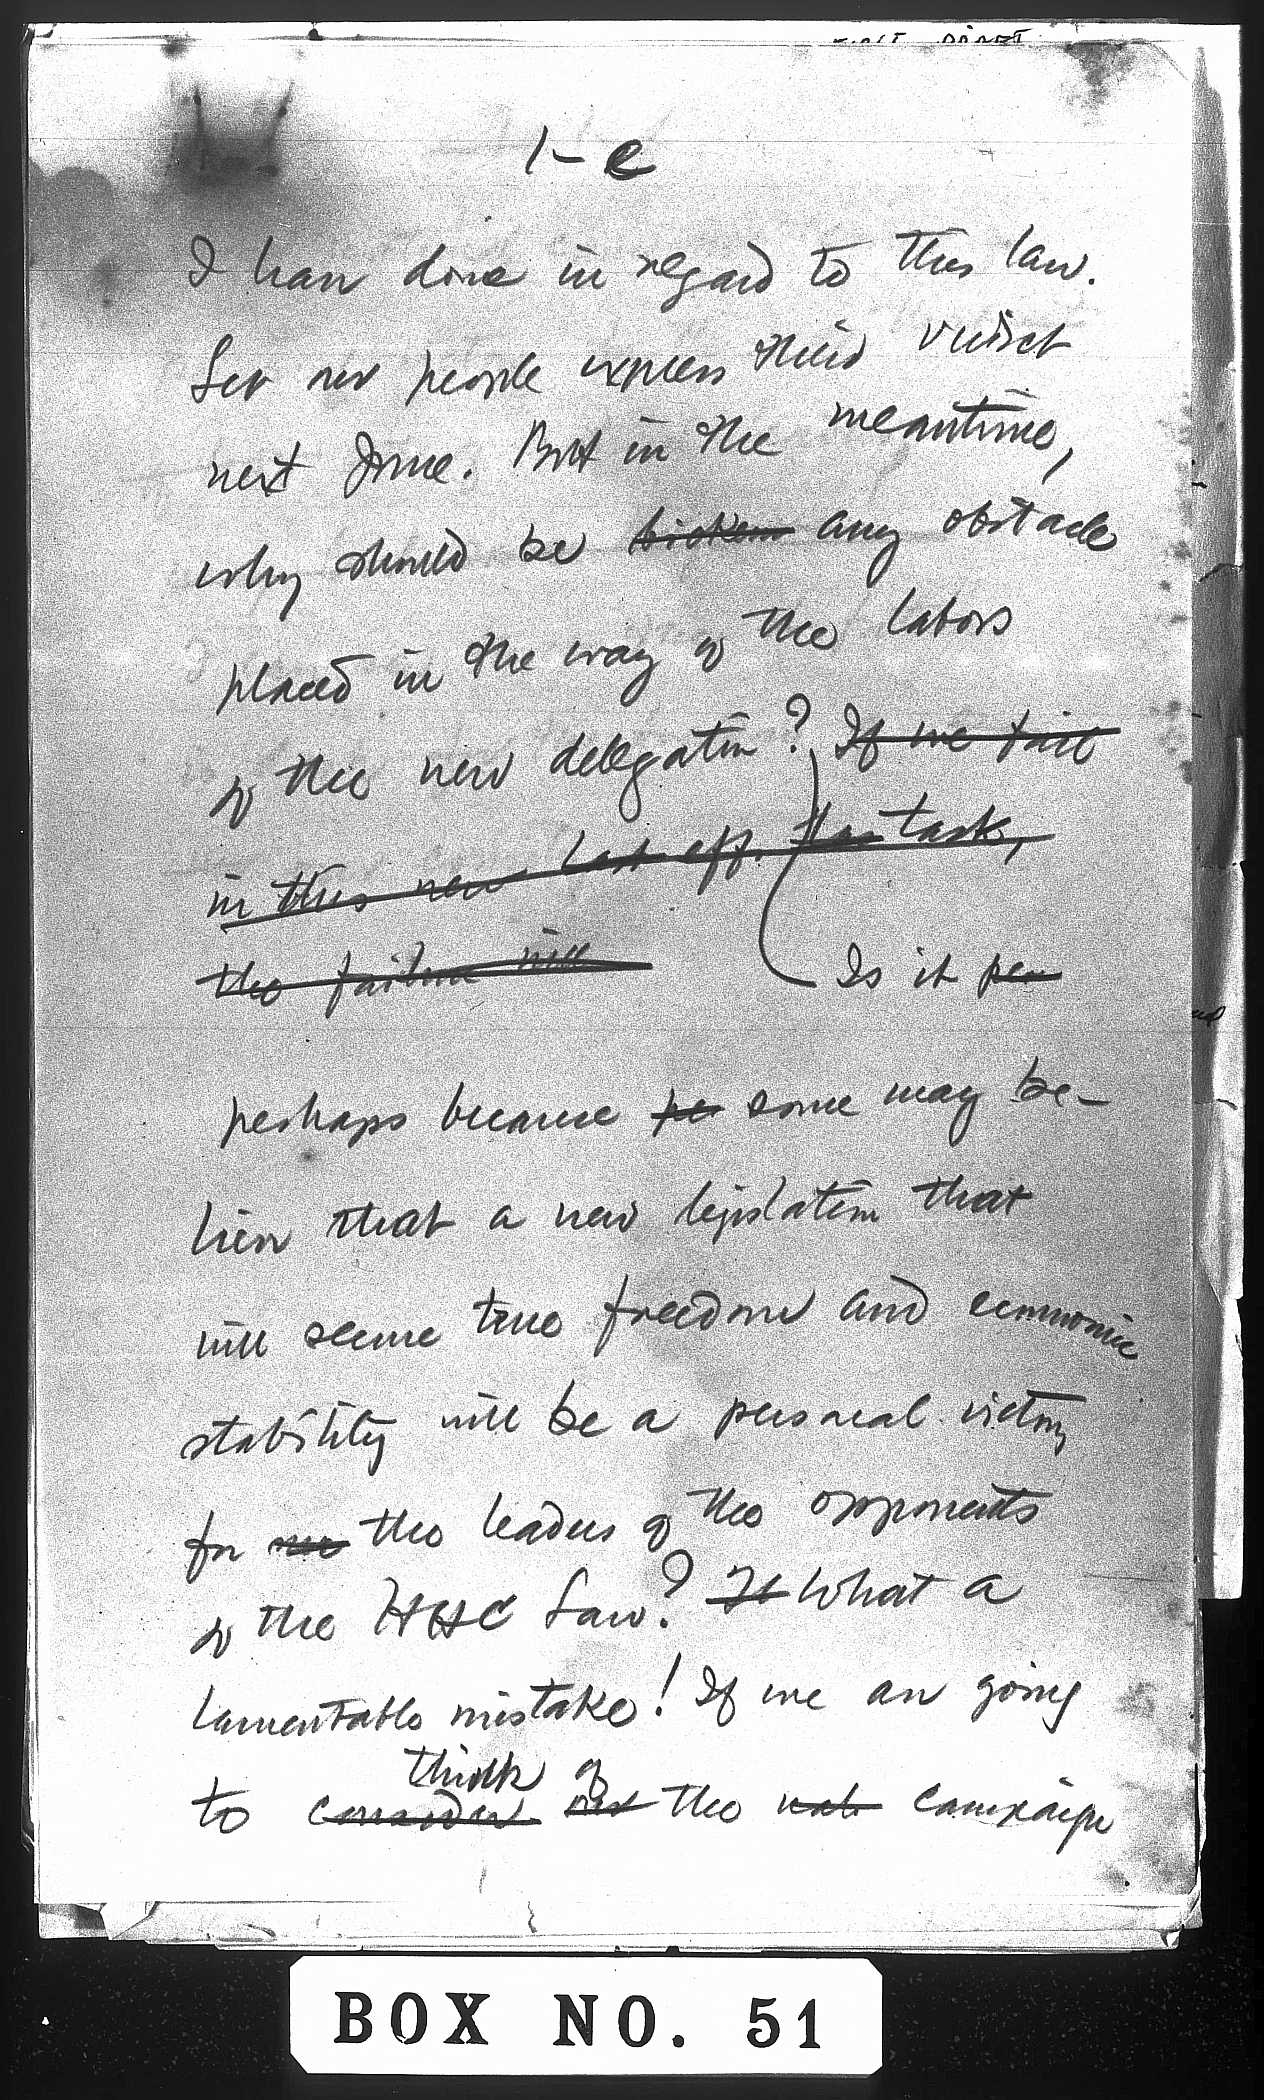 1-e
I have done in regard to this law.
Let our people express their verdict
next June. But in the meantime,
why should be broken any obstacle
placed in the way of the labors
of the new delegation? If we fail
in this new task,
the failure will
Is it per
perhaps because pe some may be-
lieve that a new legislation that
will secure true freedom and economic
stability will be a personal victory
for me the leaders of the opponents
of the HHC Law? It What a
lamentable mistake! If we are going
think of
to consider not the campaign
BOX NO. 51